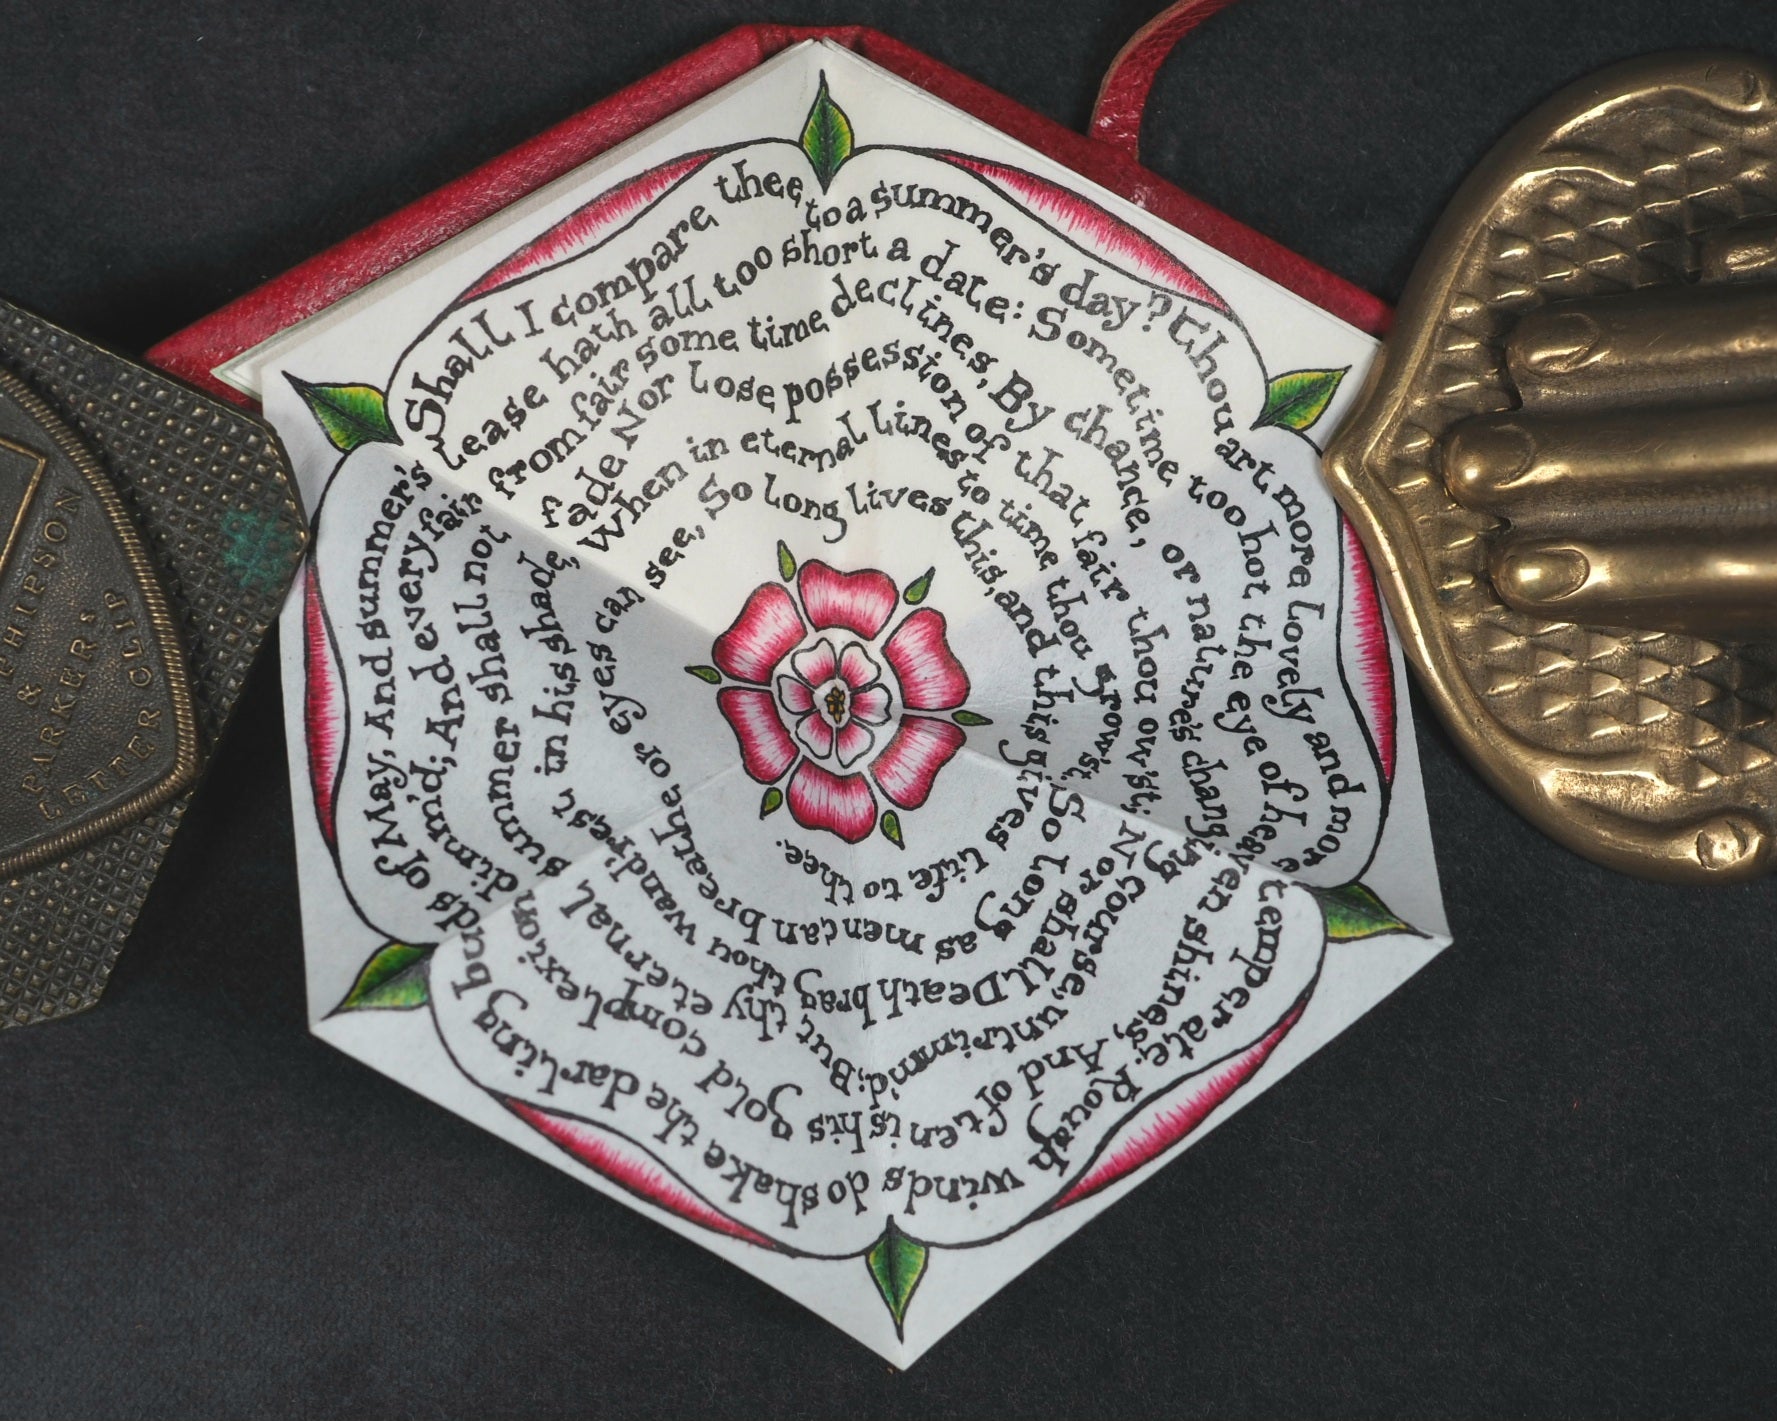 Shall I compare thee to a summer's day? Thou art more lovely and more temperate: Rough winds do shake the darling buds of May, And summer's
lease hath all too short a date: Sometime too hot the eye of heaven shines, And often is his gold complexion dimm'd; And every fair
from fair some time declines, By chance, or nature's changing course, untrimm'd; But thy eternal summer shall not
fade Nor lose possession of that fair thou ow'st; Nor shall Death brag thou wand'rest in his shade,
When in eternal lines to time thou grow'st, So long as men can breathe or eyes can
see, So long lives this, and this gives life to thee.
PHIPSON
&
PARKERS
LETTER CLIP